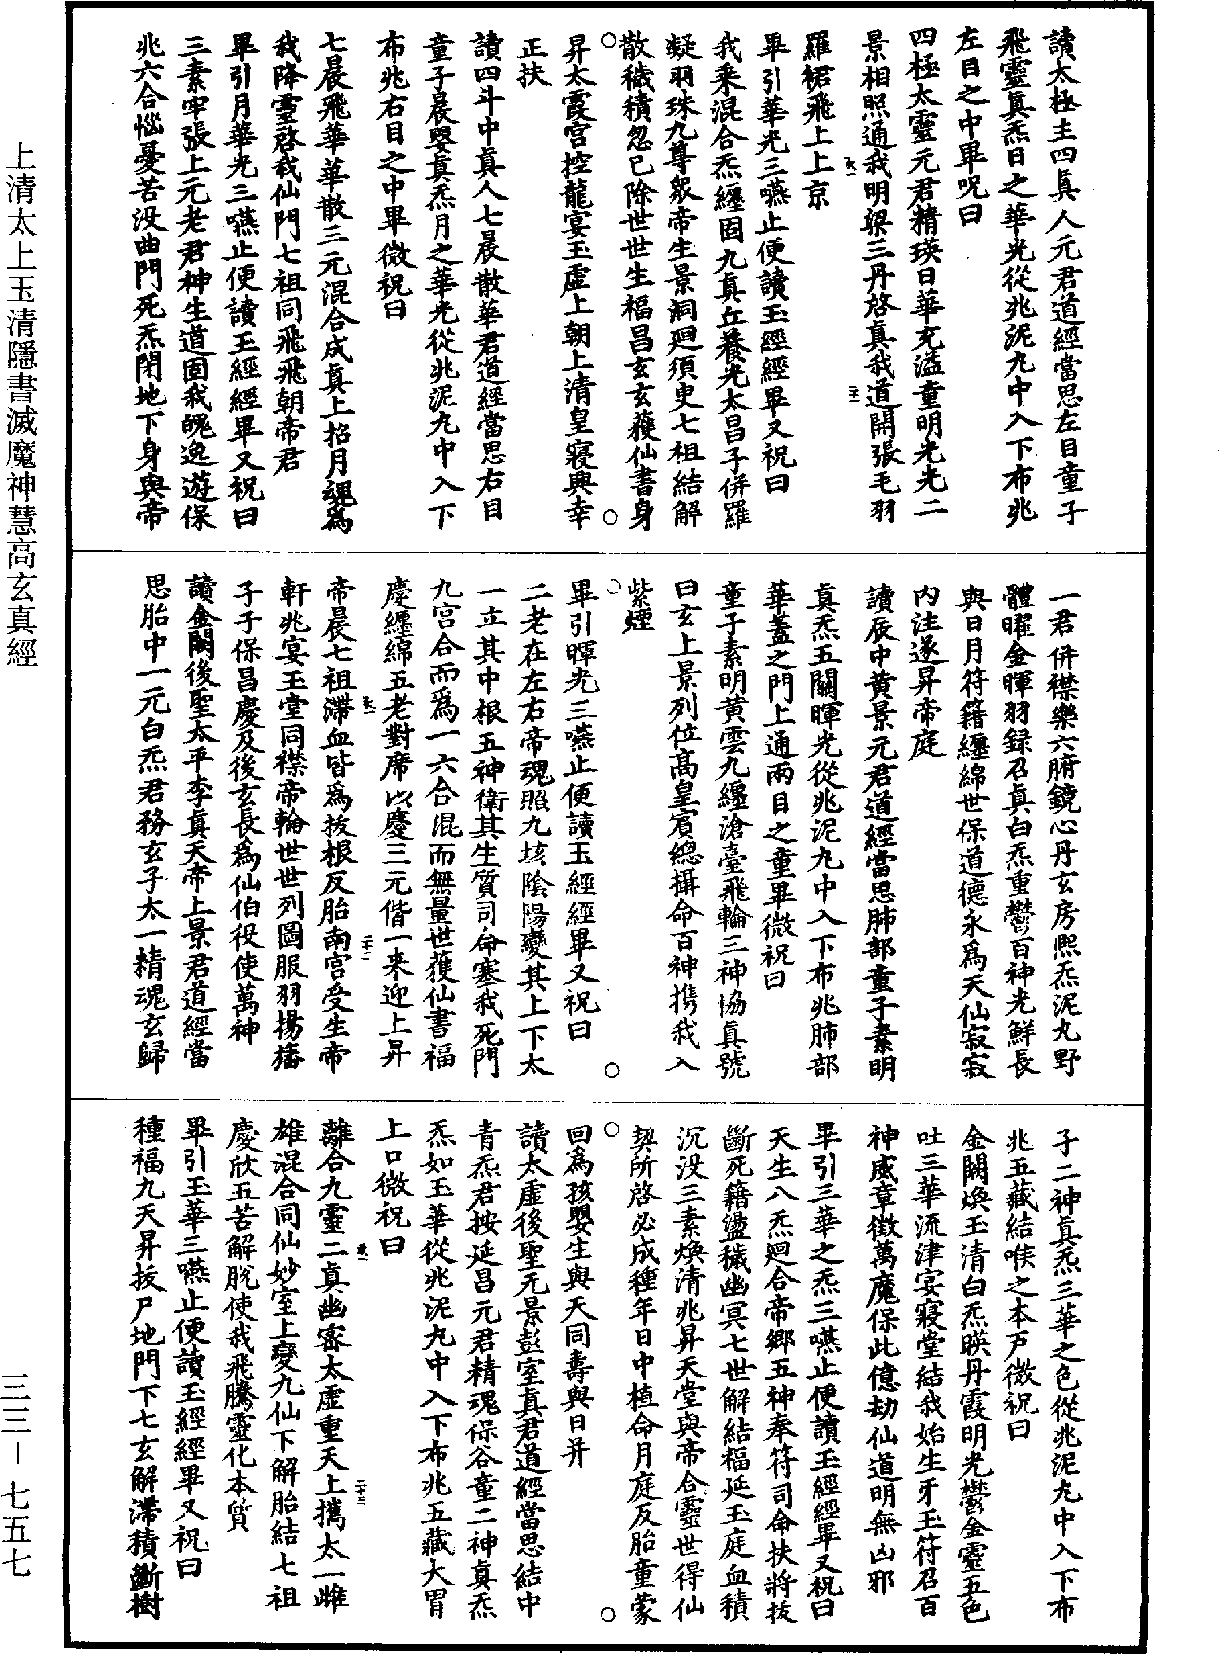 上清太上玉清隱書滅魔神慧高玄真經
三三—七五七
讀太極主四真人元君道經當思左目童子
飛靈真炁日之華光從兆泥丸中入下布兆
左目之中畢呪曰
四極太靈元君精瑛日華充溢童明光光二
景相照通我明梁三丹啓真我道開張毛羽
羅裙飛上上京
畢引華光三嚥止便讀玉經經畢又祝曰
我乘混合炁經固九真丘養光太昌子併羅
凝羽珠九尊衆帝生景洞廻須臾七祖結解
散穢積忽已除世世生福昌玄玄獲仙書身
昇太霞宮控龍宴玉虛上朝上清皇寢興幸
正扶
讀四斗中真人七晨散華君道經當思右目
童子晨嬰真炁月之華光從兆泥丸中入下
布兆右目之中畢微祝曰
七晨飛華華散三元混合成真上招月魂為
我降靈啓我仙門七祖同飛飛朝帝君
畢引月華光三嚥止便讀玉經經畢又祝曰
三素牢張上元老君神生道固我魄逸遊保
兆六合惱憂苦没曲門死炁閉地下身與帝
一君併襟樂六腑鏡心丹玄房熙炁泥丸野
體曜金暉羽録召真白炁重鬱百神光鮮長
與日月符籍纏綿世保道德永為天仙寂寂
内注遂昇帝庭
讀辰中黄景元君道經當思肺部童子素明
真炁五闢暉光從兆泥丸中入下布兆肺部
華蓋之門上通兩目之童畢微祝曰
童子素明黄雲九纏滄臺飛輪三神協真號
曰玄上景列位高皇賓總攝命百神携我入
紫煙
畢引暉光三嚥止便讀玉經經畢又祝曰
二老在左右帝魂照九垓陰陽變其上下太
一立其中根五神衛其生質司命塞我死門
九宮合而為一六合混而無量世獲仙書福
慶纏綿五老對席以慶三元偕一來迎上昇
帝晨七祖滯血皆為拔根反胎南宮受生帝
軒兆宴玉堂同襟帝輪世世列圖服羽揚旛
子子保昌慶及後玄長為仙伯役使萬神
讀金闕後聖太平李真天帝上景君道經當
思胎中一元白炁君務玄子太一精魂玄歸
子二神真炁三華之色從兆泥丸中入下布
兆五藏結喉之本户微祝曰
金闕煥玉清白炁暎丹霞明光鬱金靈五色
吐三華流津宴寢堂結我始生牙玉符召百
神威章徵萬魔保此億劫仙道明無凶邪
畢引三華之炁三嚥止便讀玉經經畢又祝曰
天生八炁廻合帝鄉五神奉符司命扶將拔
斷死籍盪穢幽冥七世解結福延玉庭血積
沉没三素煥清兆昇天堂與帝合靈世得仙
契所啓必成種年日中植命月庭反胎童蒙
回為孩嬰生與天同壽與日并
讀太虛後聖无景彭室真君道經當思結中
青炁君按延昌元君精魂保谷童二神真炁
炁如玉華從兆泥丸中入下布兆五藏大胃
上口微祝曰
離合九靈二真幽客太虛重天上攜太一雌
雄混合同仙妙室上變九仙下解胎結七祖
慶欣五苦解脫使我飛騰靈化本質
畢引玉華三嚥止便讀玉經經畢又祝曰
種福九天昇拔尸地門下七玄解滯積斷樹